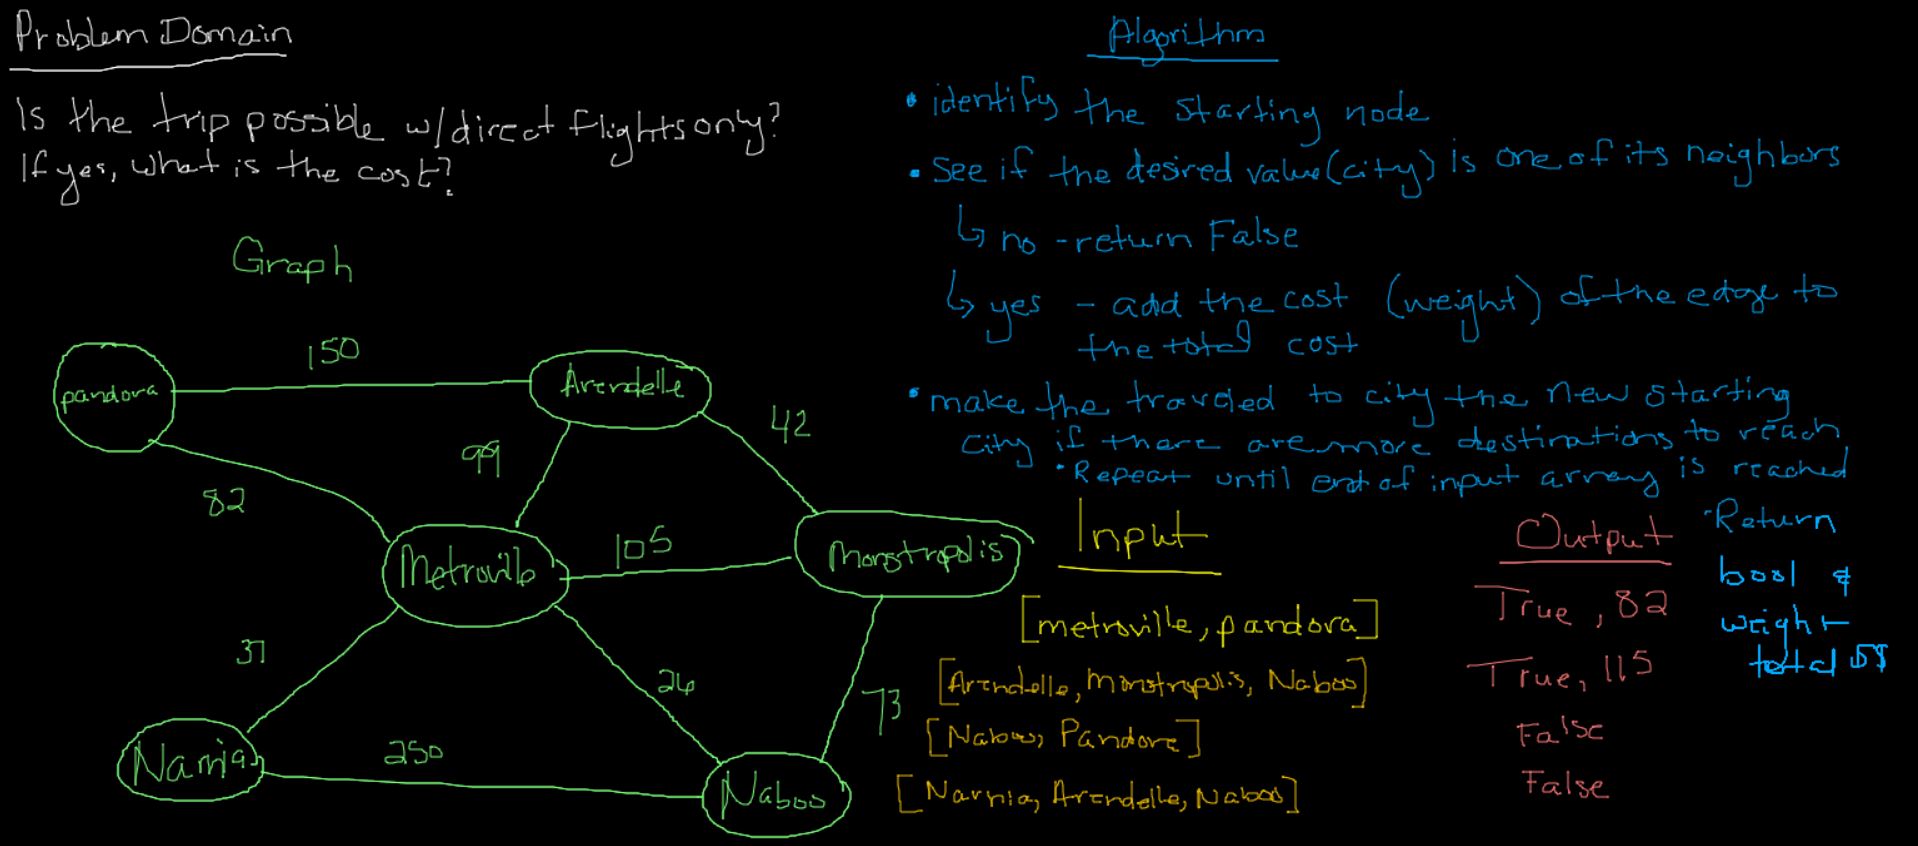 Problem Domain
Is the trip possible w/direct flights only?
If yes, what is the cost?
Graph
pandora
150
Arendelle
42
99
82
Metroville
105
Monstropolis
37
26
73
Narnia
250
Naboo
Algorithm
• identify the starting node
• see if the desired value (city) is one of its neighbors
↳ no - return False
↳ yes - add the cost (weight) of the edge to
the total cost
• make the traveled to city the new starting
city if there are more destinations to reach
• Repeat until end of input array is reached
• Return
bool &
weight
total $$
Input
[metroville, pandora]
[Arendelle, Monstropolis, Naboo]
[Naboo, Pandora]
[Narnia, Arendelle, Naboo]
Output
True, 82
True, 115
False
False